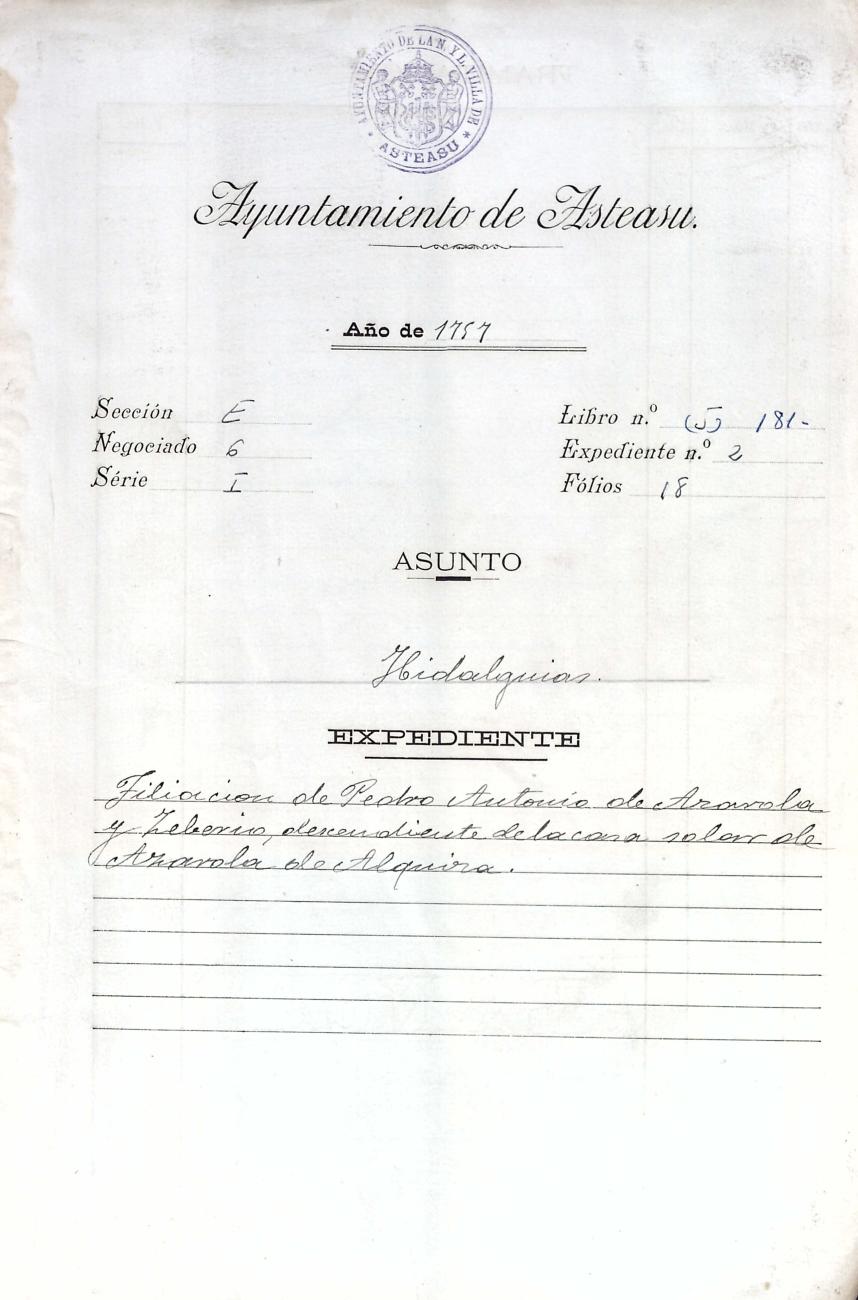 AYUNTAMIENTO DE LA N. Y L. VILLA DE
* ASTEASU *
Ayuntamiento de Asteasu.
Año de 1757
Sección E
Libro n.º (5) 181-
Negociado 6
Expediente n.º 2
Série I
Fólios 18
ASUNTO
Hidalguias.
EXPEDIENTE
Filiacion de Pedro Antonio de Azarola
y Zeberio, descendiente de la casa solar de
Azarola de Alquiza.